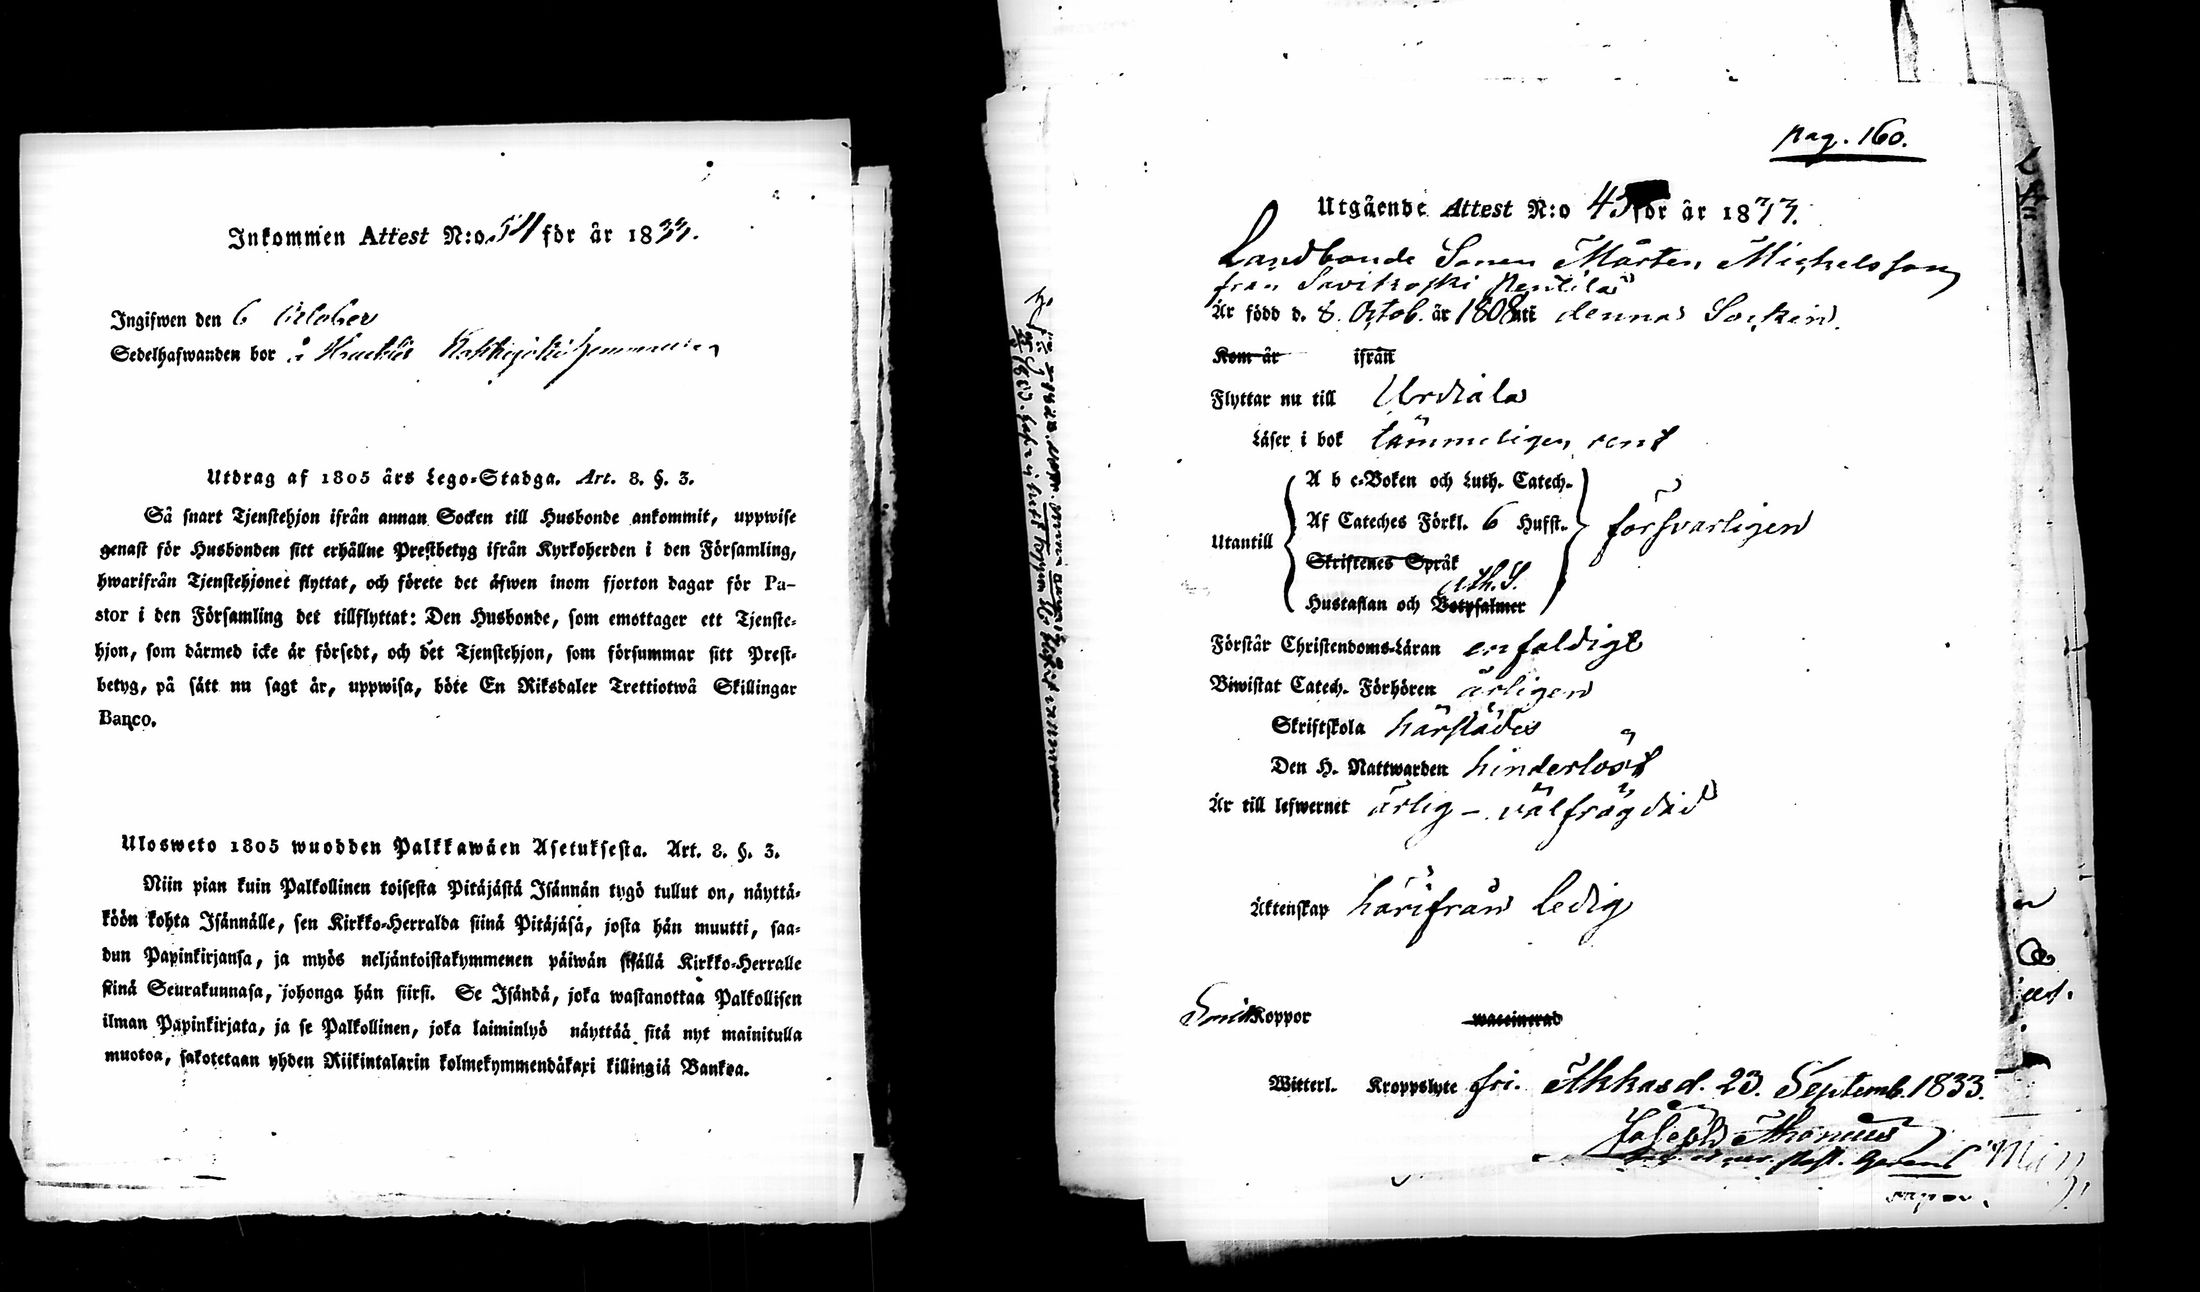 Inkommen Attest N:o 54 för år 1833.
Ingifwen den 6 October
Sedelhafwanden bor i
Utdrag af 1805 års Lego-Stadga. Art. 8. §. 3.
Så snart Tjenstehjon ifrån annan Socken till Husbonde ankommit, uppwise
genast för Husbonden sitt erhållne Prestbetyg ifrån Kyrkoherden i den Församling,
hwarifrån Tjenstehjonet flyttat, och förete det äfwen inom fjorton dagar för Pa-
stor i den Församling det tillflyttat: Den Husbonde, som emottager ett Tjenste-
hjon, som därmed icke är försedt, och det Tjenstehjon, som försummar sitt Prest-
betyg, på sätt nu sagt är, uppwisa, böte En Riksdaler Trettiotwå Skillingar
Banco.
Ulosweto 1805 wuodden Palkkawäen Asetuksesta. Art. 8. §. 3.
Niin pian kuin Palkollinen toisesta Pitäjästä Isännän tygö tullut on, näyttä-
köön kohta Isännälle, sen Kirkko-Herralda siinä Pitäjäsä, josta hän muutti, saa-
dun Papinkirjansa, ja myös neljäntoistakymmenen päiwän sisällä Kirkko-Herralle
siinä Seurakunnasa, johonga hän siirsi. Se Isändä, joka wastanottaa Palkollisen
ilman Papinkirjata, ja se Palkollinen, joka laiminlyö näyttää sitä nyt mainitulla
muotoa, sakotetaan yhden Riikintalarin kolmekymmendäkaxi killingiä Bankoa.
pag. 160.
Utgående Attest N:o 43 för år 1833.
Landbonde Sonen Mårten Michelsson
från Savikoski Penttilä
Är född d. 8. Octob. år 1808 uti denna Socken.
Kom år ifrån
Flyttar nu till Urdiala
Läser i bok tämmeligen rent
A b c-Boken och Luth. Catech.
Af Cateches Förkl. 6 Hufst.
Utantill försvarligen
Skriftenes Språk
Ath. S.
Hustaflan och Botpsalmer
Förstår Christendoms-Läran enfaldigt
Biwistat Catech. Förhören årligen
Skriftskola härstädes
Den H. Nattwarden hinderlöst
Är till lefwernet ärlig - välfrägdad
Äktenskap härifrån ledig
Koppor waccinerad
Witterl. Kroppslyte fri. Akkas d. 23. Septemb. 1833.
Joseph